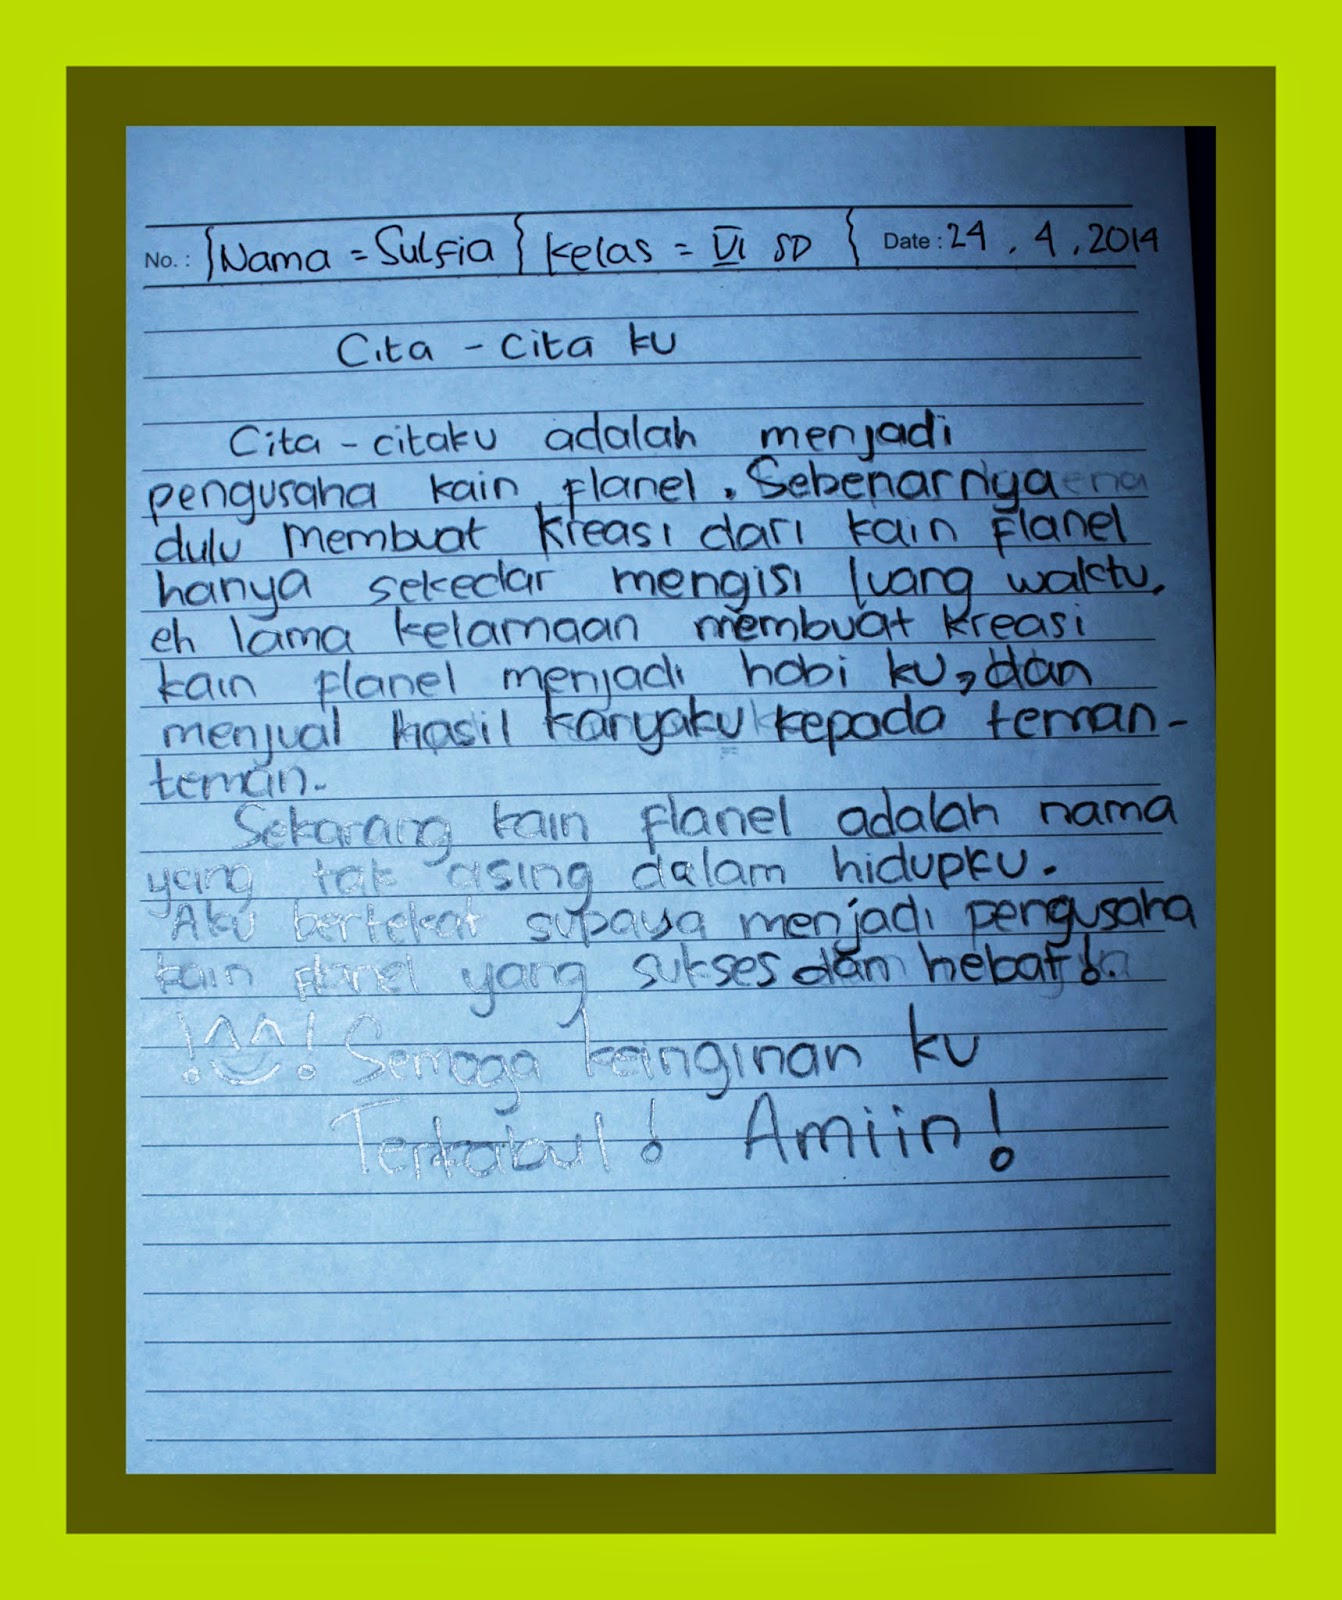 No. : Nama = Sulfia kelas = VI SD Date : 24 . 4 . 2014
Cita - Cita ku
Cita - citaku adalah menjadi
pengusaha kain flanel. Sebenarnya
dulu membuat kreasi dari kain flanel
hanya sekedar mengisi luang waktu,
eh lama kelamaan membuat kreasi
kain flanel menjadi hobi ku, dan
menjual hasil karyaku kepada teman-
teman.
Sekarang kain flanel adalah nama
yang tak asing dalam hidupku.
Aku bertekat supaya menjadi pengusaha
kain flanel yang sukses dan hebat!.
!^^! Semoga keinginan ku
Terkabul! Amiin!